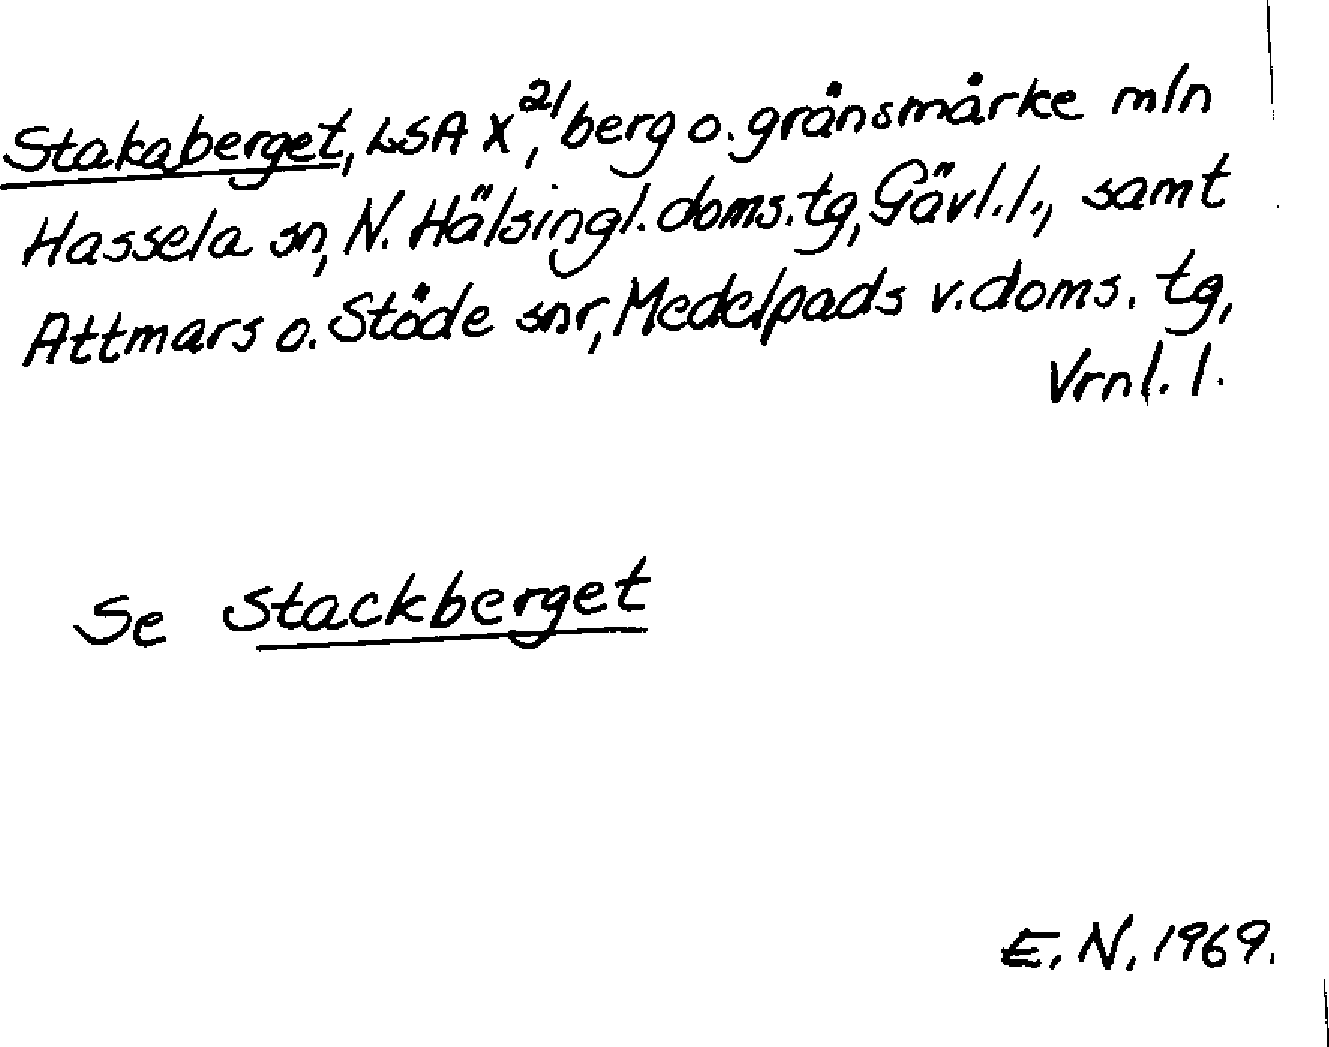 Stakaberget, LSA X²¹, berg o. gränsmärke mln
Hassela sn, N. Hälsingl. doms. tg, Gävl. l., samt
Attmars o. Stöde snr, Medelpads v. doms. tg,
Vrnl. l.
Se Stackberget
E. N. 1969.